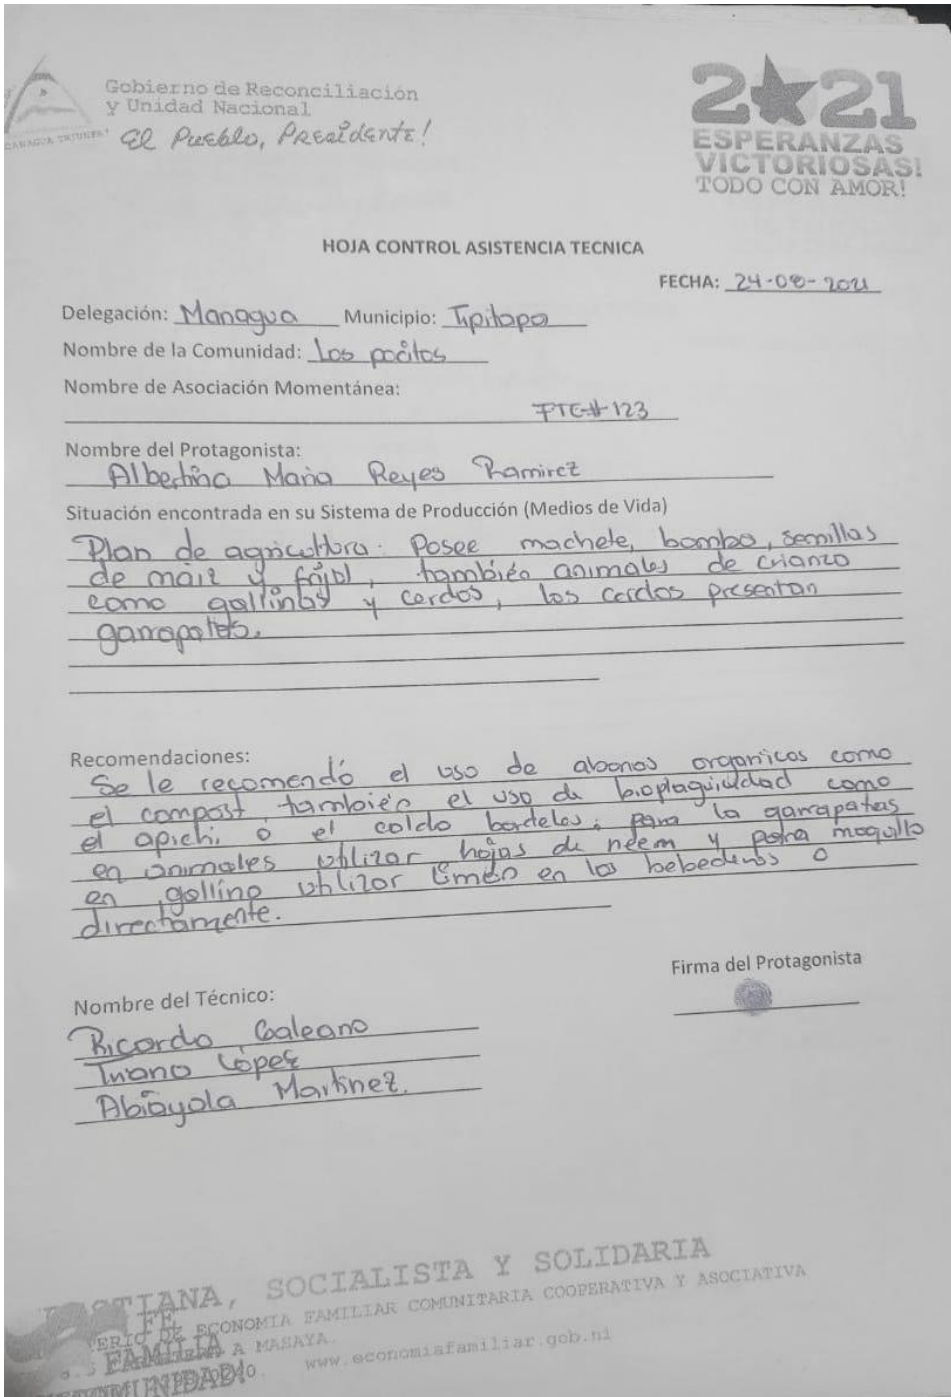 Gobierno de Reconciliación
y Unidad Nacional
El Pueblo, Presidente!
2021
ESPERANZAS
VICTORIOSAS!
TODO CON AMOR!
HOJA CONTROL ASISTENCIA TECNICA
FECHA: 24-08-2021
Delegación: Managua Municipio: Tipitapa
Nombre de la Comunidad: Los pocitos
Nombre de Asociación Momentánea:
PTC#123
Nombre del Protagonista:
Albertina Maria Reyes Ramirez
Situación encontrada en su Sistema de Producción (Medios de Vida)
Plan de agricultura: Posee machete, bomba, semillas
de maiz y frijol, también animales de crianza
como gallinas y cerdos, los cerdos presentan
garrapatas.
Recomendaciones:
Se le recomendó el uso de abonos organicos como
el compost, también el uso de como
el apichi o el caldo bordeles, para la garrapatas
en animales utilizar hojas de neem y para moquillo
en gallina utilizar limón en los bebederos o
directamente.
Firma del Protagonista
Nombre del Técnico:
Ricardo Galeano
López
Martinez.
, SOCIALISTA Y SOLIDARIA
ECONOMIA FAMILIAR COMUNITARIA COOPERATIVA Y ASOCIATIVA
FAMILIA A MASAYA.
www.economiafamiliar.gob.ni